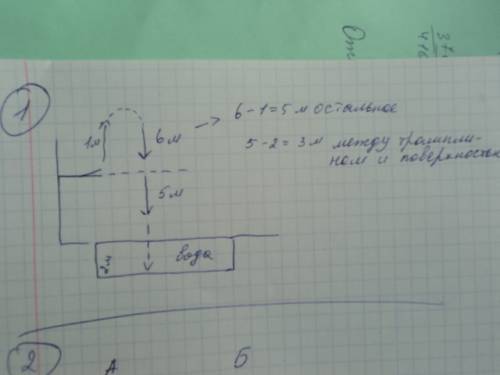 3+
4+6
От
1
1м
6м
6-1=5 м остальное
5-2=3м между трампли-
ном и поверхностью
5м
2м
вода
2
А
Б